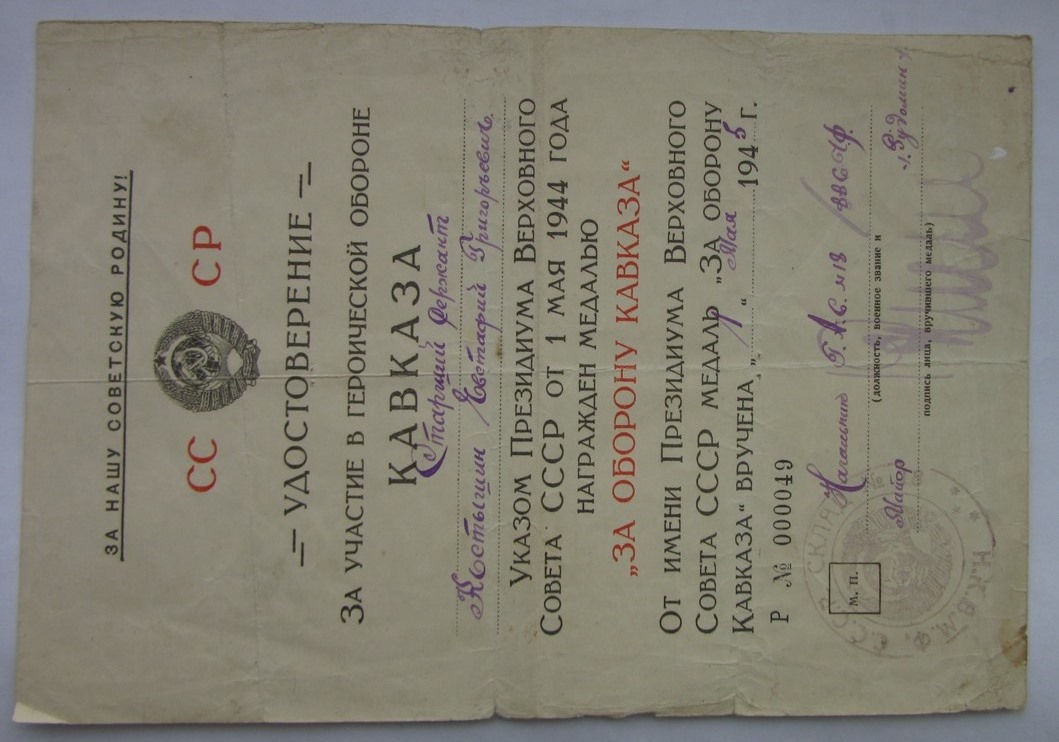 ЗА НАШУ СОВЕТСКУЮ РОДИНУ!
СС СР
УДОСТОВЕРЕНИЕ
ЗА УЧАСТИЕ В ГЕРОИЧЕСКОЙ ОБОРОНЕ
КАВКАЗА
Старший сержант
Костыгшин Евстафий Григорьевич.
УКАЗОМ ПРЕЗИДИУМА ВЕРХОВНОГО
СОВЕТА СССР ОТ 1 МАЯ 1944 ГОДА
НАГРАЖДЕН МЕДАЛЬЮ
„ЗА ОБОРОНУ КАВКАЗА“
ОТ ИМЕНИ ПРЕЗИДИУМА ВЕРХОВНОГО
СОВЕТА СССР МЕДАЛЬ „ЗА ОБОРОНУ
КАВКАЗА“ ВРУЧЕНА „ “ Мая 1945 г.
Р № 000049
Начальник
(должность, военное звание и
Майор
подпись лица, вручившего медаль)
М. П.
СКЛАД
Н.К.В.М.Ф.